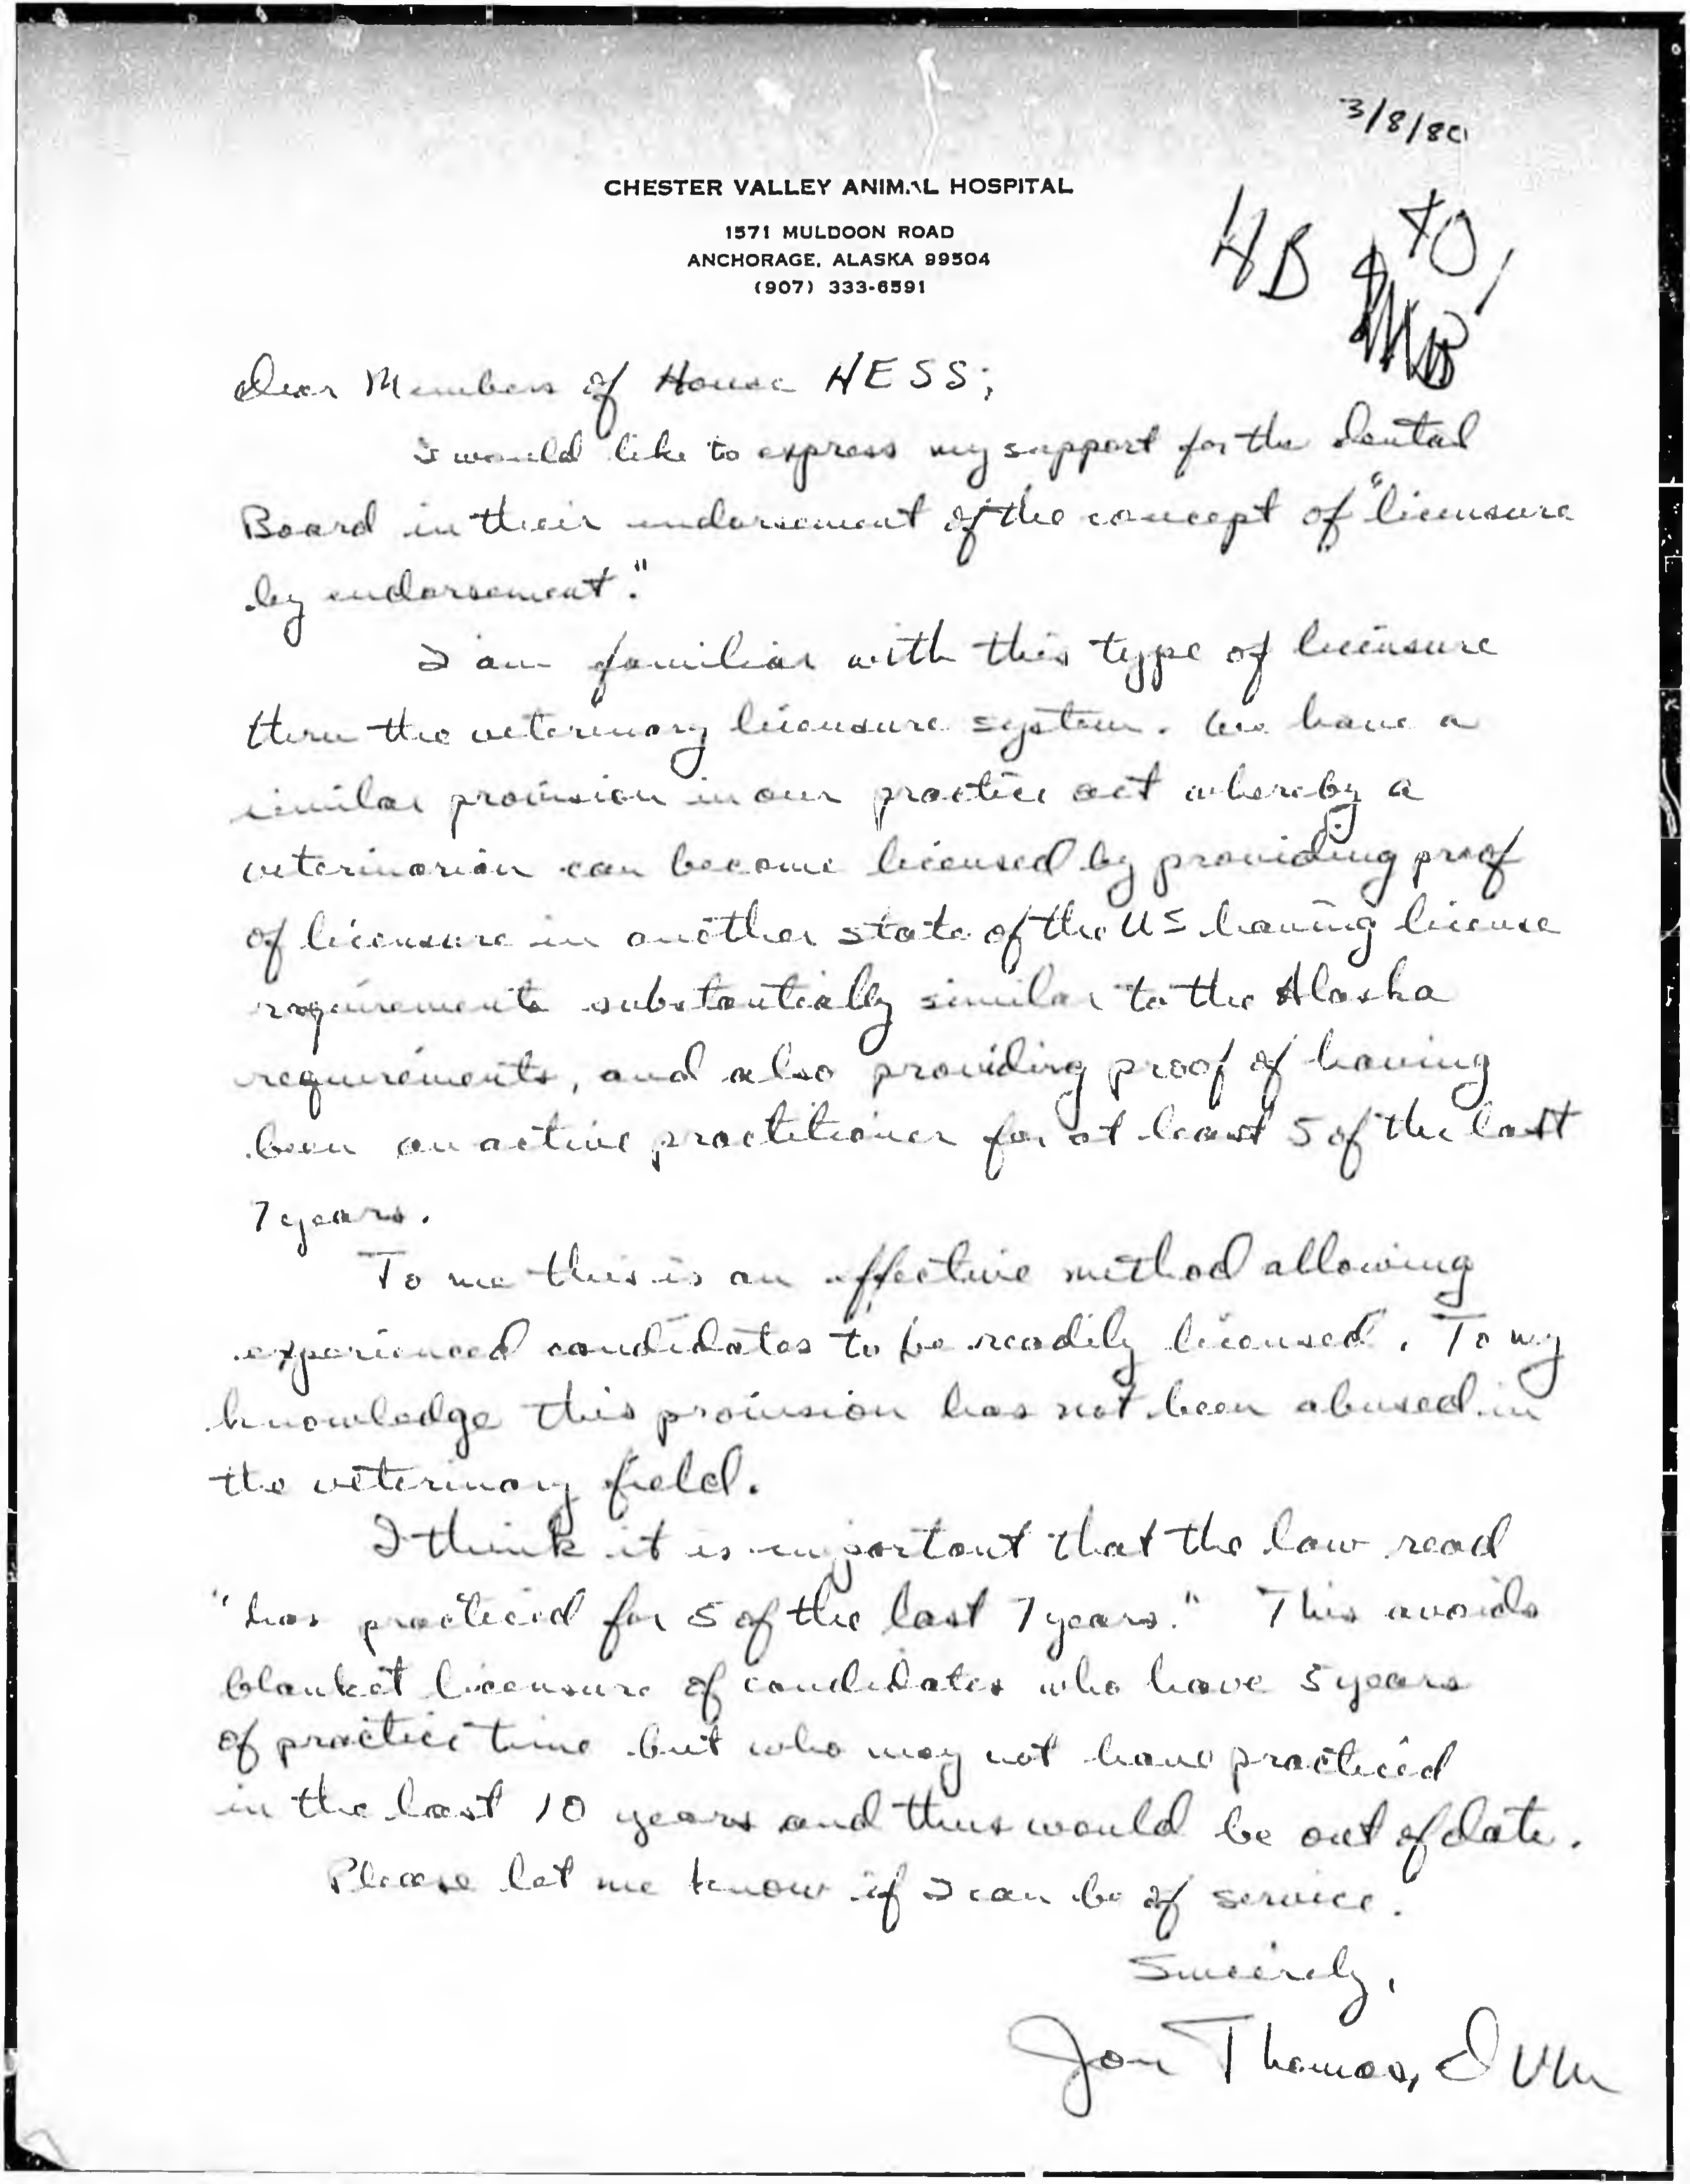 3/8/80
CHESTER VALLEY ANIMAL HOSPITAL
1571 MULDOON ROAD
ANCHORAGE, ALASKA 99504
(907) 333-6591
HB
Dear Members of House HESS;
I would like to express my support for the Dental
Board in their endorsement of the concept of "licensure
by endorsement."
I am familiar with this type of licensure
thru the veterinary licensure system. We have a
similar provision in our practice act whereby a
veterinarian can become licensed by providing proof
of licensure in another state of the US having license
requirements substantially similar to the Alaska
requirements, and also providing proof of having
been an active practitioner for at least 5 of the last
7 years.
To me this is an effective method allowing
experienced candidates to be readily licensed. To my
knowledge this provision has not been abused in
the veterinary field.
I think it is important that the law read
"has practiced for 5 of the last 7 years." This avoids
blanket licensure of candidates who have 5 years
of practice time but who may not have practiced
in the last 10 years and thus would be out of date.
Please let me know if I can be of service.
Sincerely,
Jon Thomas, DVM